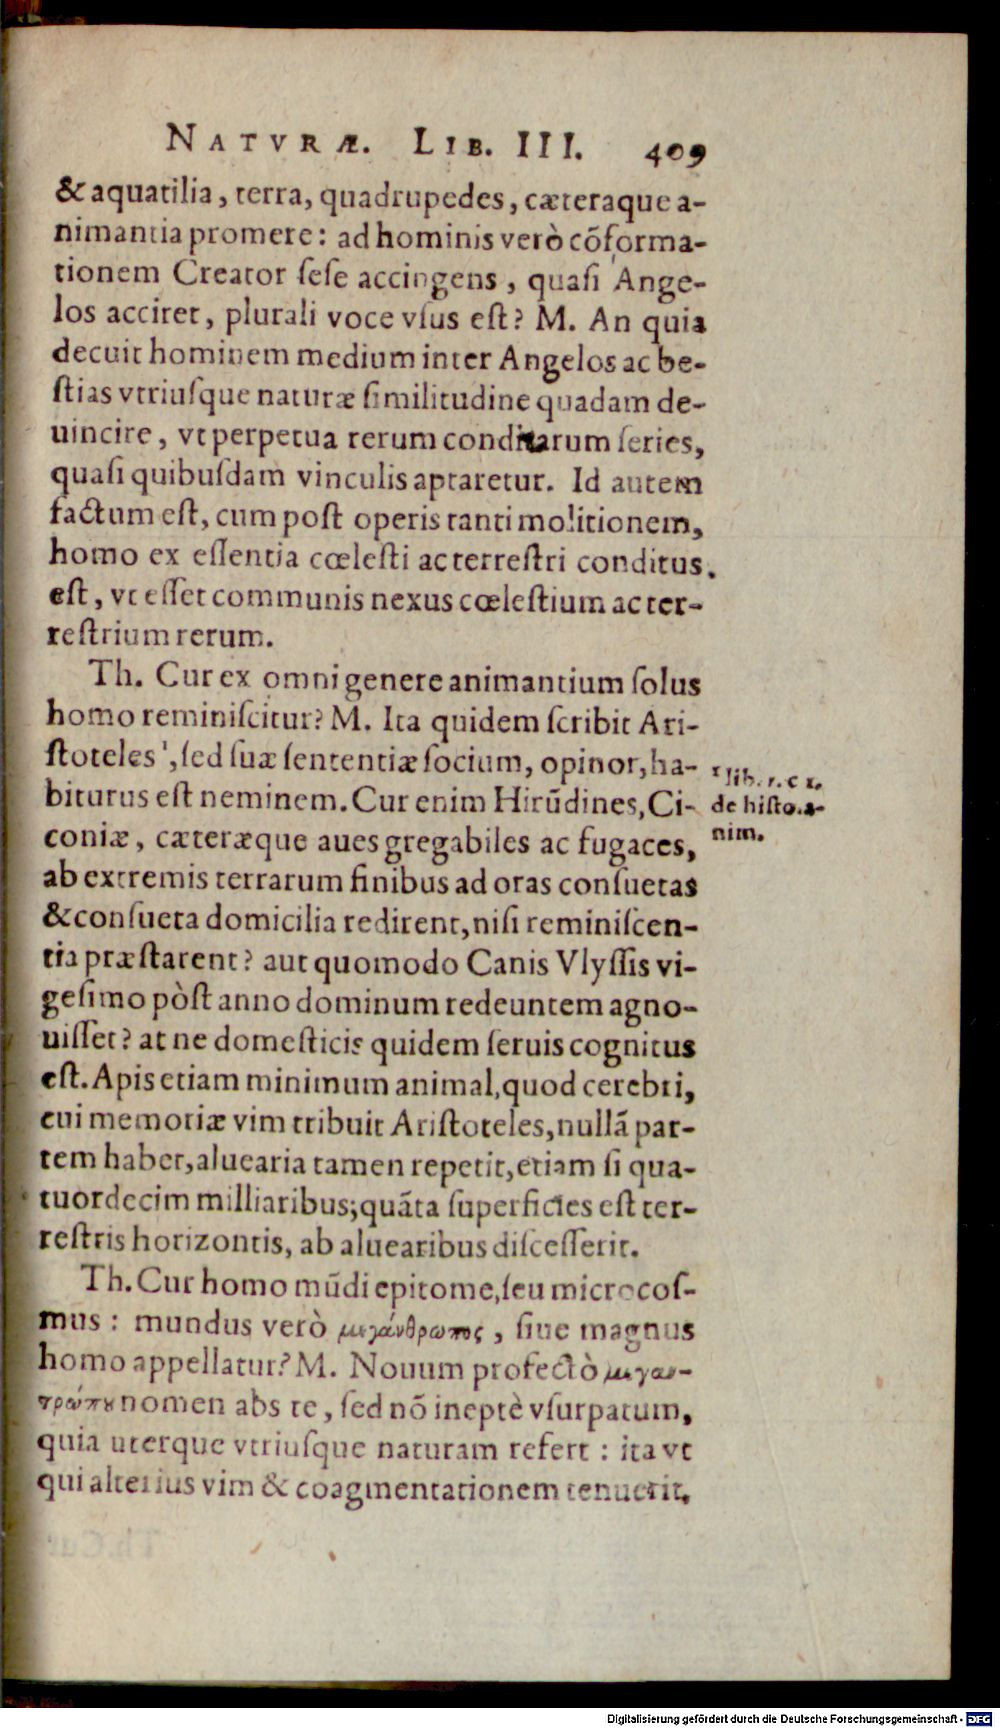 NATVRÆ. LIB. III. 409
& aquatilia, terra, quadrupedes, cæteraque a-
nimantia promere: ad hominis verò cõforma-
tionem Creator ſeſe accingens, quaſi Ange-
los acciret, plurali voce vſus eſt? M. An quia
decuit hominem medium inter Angelos ac be-
ſtias vtriuſque naturæ ſimilitudine quadam de-
uincire, vt perpetua rerum conditarum ſeries,
quaſi quibuſdam vinculis aptaretur. Id autem
factum eſt, cum poſt operis tanti molitionem,
homo ex eſſentia cœleſti ac terreſtri conditus.
eſt, vt eſſet communis nexus cœleſtium ac ter-
reſtrium rerum.
Th. Cur ex omni genere animantium ſolus
homo reminiſcitur? M. Ita quidem ſcribit Ari-
ſtoteles¹, ſed ſuæ ſententiæ ſocium, opinor, ha-
biturus eſt neminem. Cur enim Hirũdines, Ci-
coniæ, cæteræque aues gregabiles ac fugaces,
ab extremis terrarum finibus ad oras conſuetas
& conſueta domicilia redirent, niſi reminiſcen-
tia præſtarent? aut quomodo Canis Vlyſſis vi-
geſimo pòſt anno dominum redeuntem agno-
uiſſet? at ne domeſticis quidem ſeruis cognitus
eſt. Apis etiam minimum animal, quod cerebri,
cui memoriæ vim tribuit Ariſtoteles, nullã par-
tem habet, aluearia tamen repetit, etiam ſi qua-
tuordecim milliaribus; quãta ſuperficies eſt ter-
reſtris horizontis, ab aluearibus diſceſſerit.
Th. Cur homo mũdi epitome, ſeu microcoſ-
mus: mundus verò μεγάνθρωπος, ſiue magnus
homo appellatur? M. Nouum profectò μεγαν-
τρώπου nomen abs te, ſed nõ ineptè vſurpatum,
quia uterque vtriuſque naturam refert: ita vt
qui alterius vim & coagmentationem tenuerit,
1 lib. 1. c 1.
de hiſto. a-
nim.
Digitalisierung gefördert durch die Deutsche Forschungsgemeinschaft - DFG